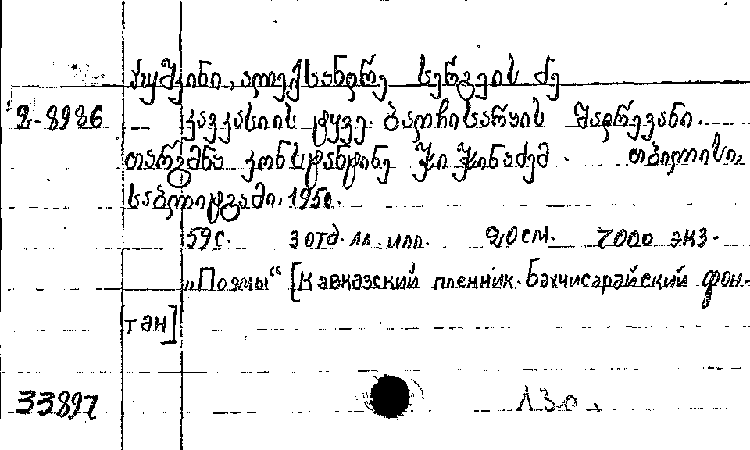 პუშკინი, ალექსანდრე სერგეის ძე
2-8926 — კავკასიის ტყვე. ბაღჩისარაის შადრევანი.
თარგმნა კონსტანტინე ჭიჭინაძემ. თბილისი,
საბლიტგამი. 1950.
59 с. 3 отд. лл. илл. 20 см. 7000 экз.
„Поэмы“ [Кавказский пленник. Бахчисарайский фон-
тан]
33897 130.